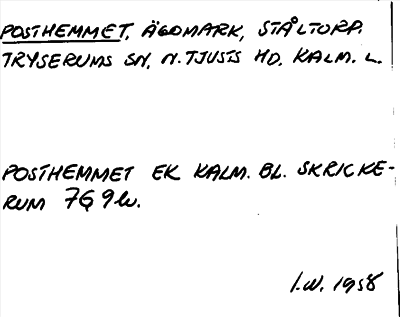 POSTHEMMET, ÄGOMARK, STÅLTORP.
TRYSERUMS SN, N. TJUSTS HD, KALM. L.
POSTHEMMET EK KALM. BL. SKRICKE-
RUM 7G 9b.
I.W. 1958